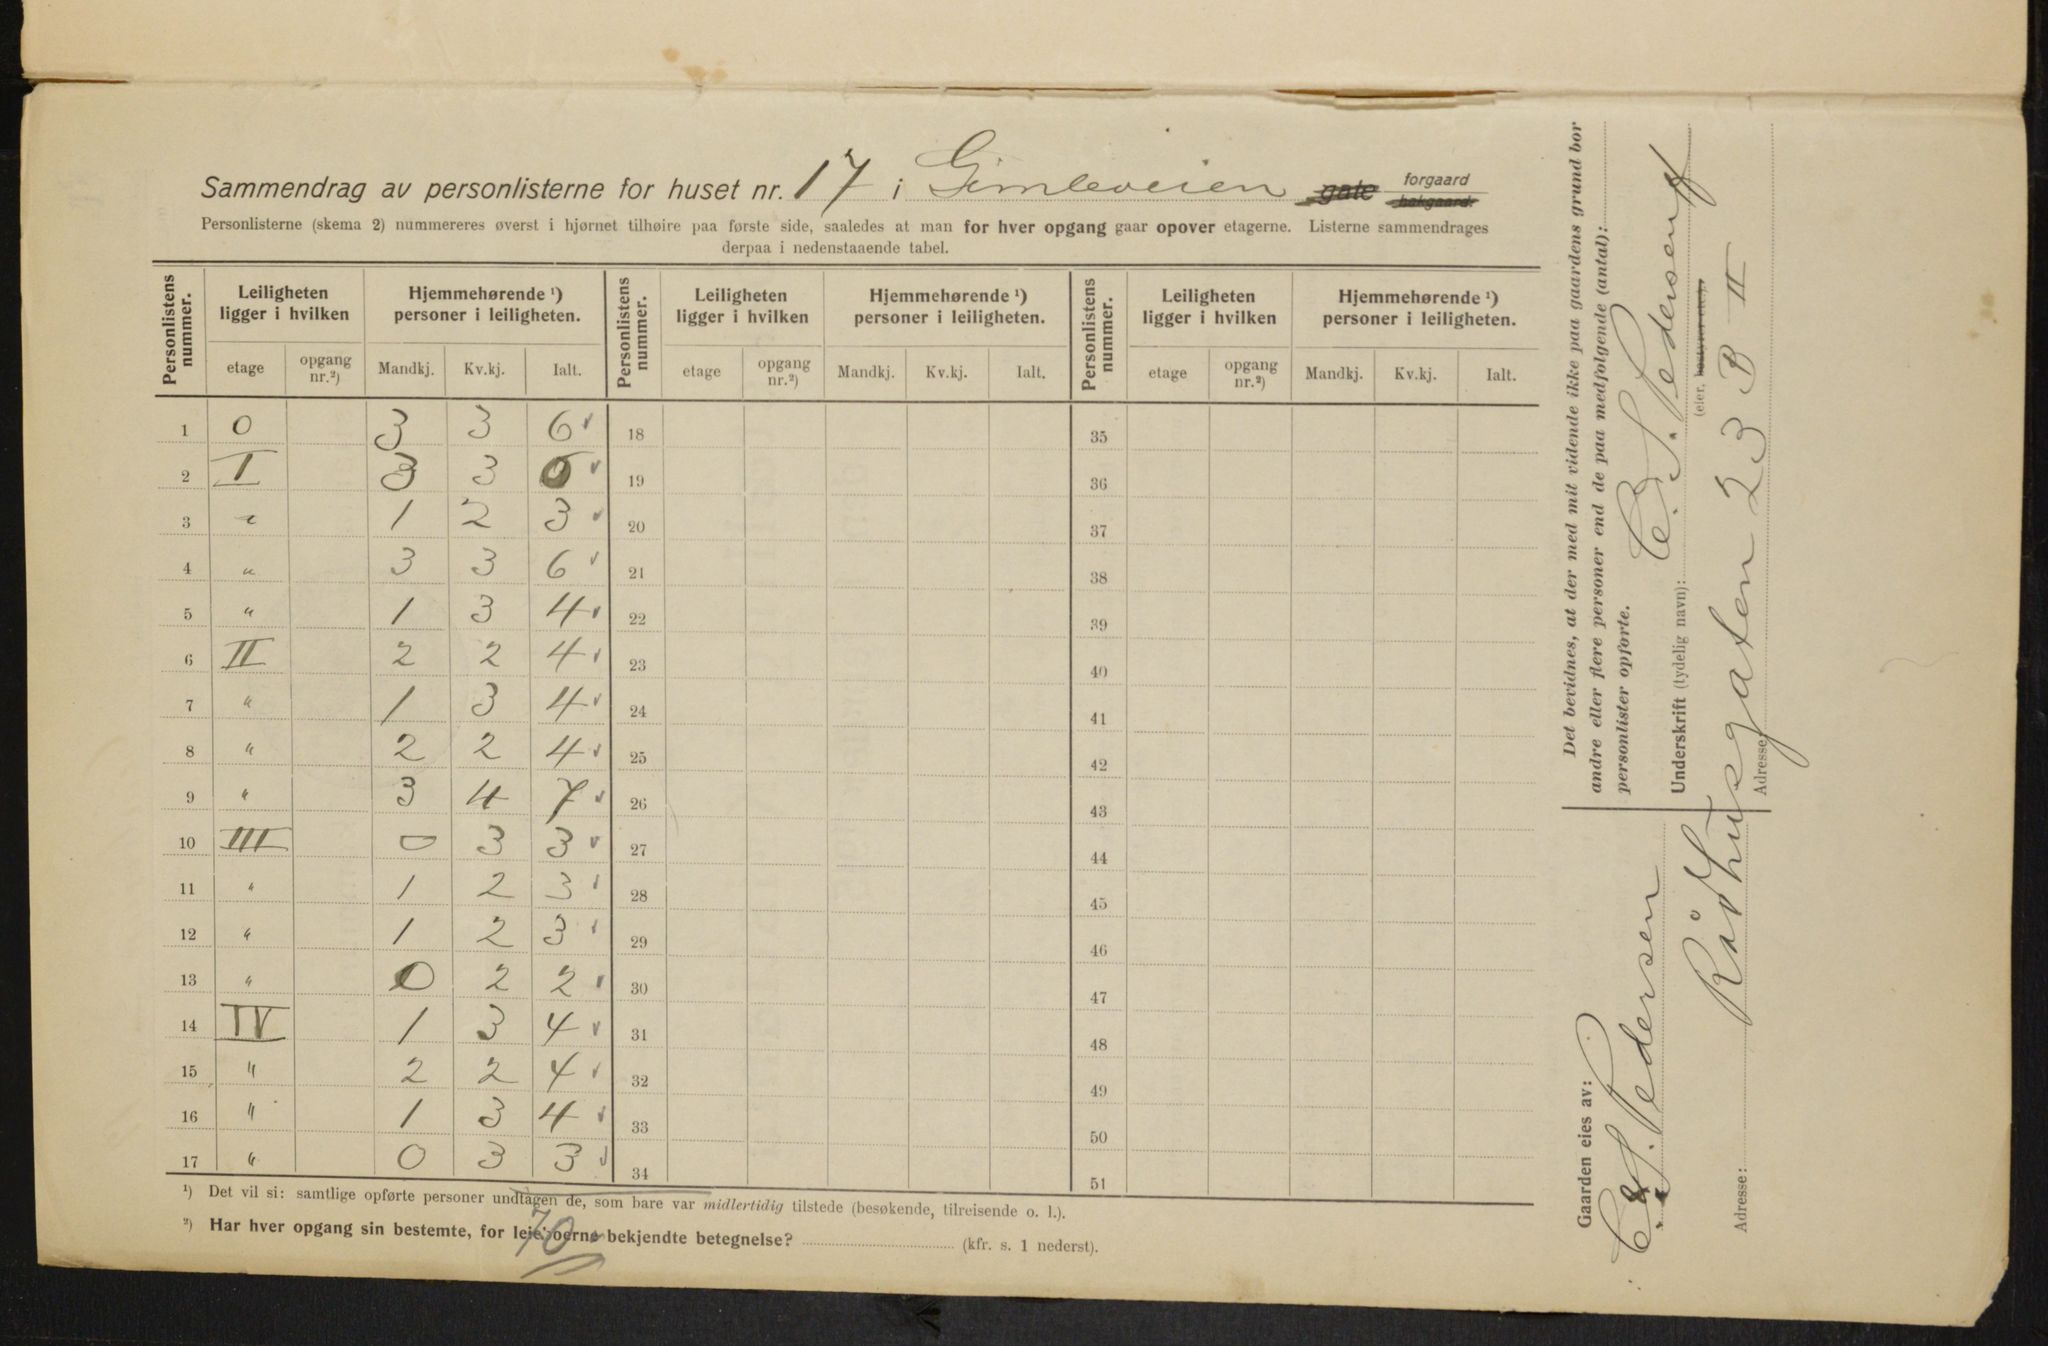 Sammendrag av personlisterne for huset nr. 17 i Gimleveien gate forgaard bakgaard.
Personlisterne (skema 2) nummereres øverst i hjørnet tilhøire paa første side, saaledes at man for hver opgang gaar opover etagerne. Listerne sammendrages
derpaa i nedenstaaende tabel.
Personlistens nummer. Leiligheten ligger i hvilken Hjemmehørende ¹) personer i leiligheten. Personlistens nummer. Leiligheten ligger i hvilken Hjemmehørende ¹) personer i leiligheten. Personlistens nummer. Leiligheten ligger i hvilken Hjemmehørende ¹) personer i leiligheten.
etage opgang nr.²) Mandkj. Kv.kj. Ialt. etage opgang nr.²) Mandkj. Kv.kj. Ialt. etage opgang nr.²) Mandkj. Kv.kj. Ialt.
1 0 3 3 6 18 35
2 I 3 3 19 36
3 " 1 2 3 20 37
4 " 3 3 6 21 38
5 " 1 3 4 22 39
6 II 2 2 4 23 40
7 " 1 3 4 24 41
8 " 2 2 4 25 42
9 " 3 4 7 26 43
10 III 0 3 3 27 44
11 " 1 2 3 28 45
12 " 1 2 3 29 46
13 " 0 2 2 30 47
14 IV 1 3 4 31 48
15 " 2 2 4 32 49
16 " 1 3 4 33 50
17 " 0 3 3 34 51
¹) Det vil si: samtlige opførte personer undtagen de, som bare var midlertidig tilstede (besøkende, tilreisende o. l.).
²) Har hver opgang sin bestemte, for leieboerne bekjendte betegnelse? (kfr. s. 1 nederst).
70
Det bevidnes, at der med mit vidende ikke paa gaardens grund bor
andre eller flere personer end de paa medfølgende (antal):
personlister opførte.
Underskrift (tydelig navn): C. S. Pedersen
(eier, bestyrer etc.).
Adresse: Rådhusgaten 23 B II
Gaarden eies av:
C. S. Pedersen
Adresse: